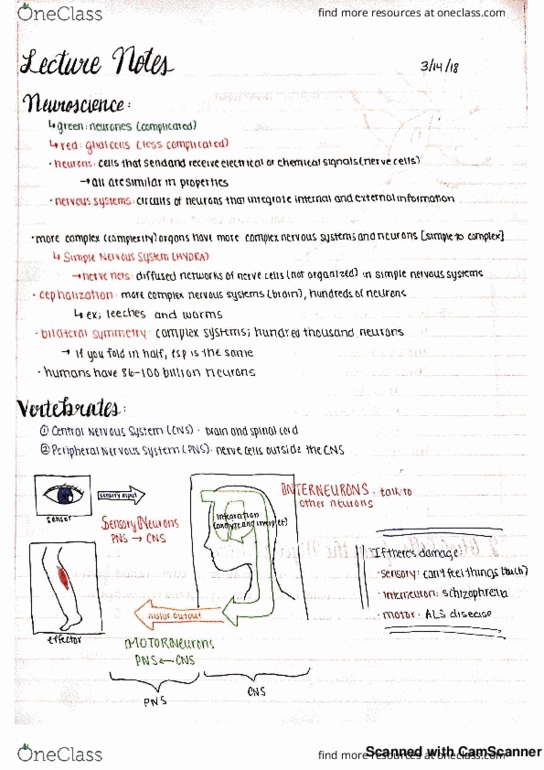 OneClass
find more resources at oneclass.com
Lecture Notes
3/14/18
Neuroscience:
↳ green: neurones (complicated)
↳ red: glial cells (less complicated)
· neurons: cells that send and receive electrical or chemical signals (nerve cells)
→ all are similar in properties
· nervous systems: circuits of neurons that integrate internal and external information
· more complex (complexity) organs have more complex nervous systems and neurons [simple to complex]
↳ Simple Nervous System (HYDRA)
→ nerve nets: diffused networks of nerve cells (not organized) in simple nervous systems
· cephalization: more complex nervous systems (brain), hundreds of neurons
↳ ex; leeches and worms
· bilateral symmetry: complex systems; hundred thousand neurons
→ if you fold in half, esp is the same
· humans have 86-100 billion neurons
Vertebrates:
① Central Nervous System (CNS) · brain and spinal cord
② Peripheral Nervous System (PNS) · nerve cells outside the CNS
sensory input
sensor
Sensory Neurons
PNS → CNS
integration
(analyze and interpret)
INTERNEURONS · talk to
other neurons
If there's damage:
· sensory: can't feel things (touch)
· interneuron: schizophrenia
· motor: ALS disease
effector
motor output
MOTOR Neurons
PNS ← CNS
PNS
CNS
OneClass
find more resources at oneclass.com
Scanned with CamScanner